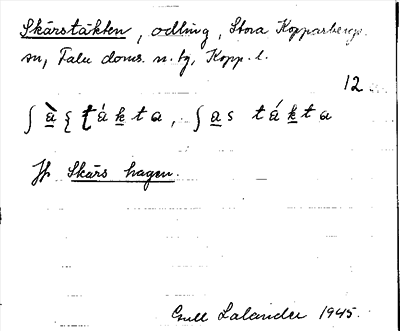 Skärstäkten, odling, Stora Kopparbergs
sn, Falu doms. n. tg, Kopp. l.
12
ʃ a̲ ʂ t á k̲ t a, ʃ a̲ s t á k̲ t a
Jfr Skärs hagen.
Lalander 1945.